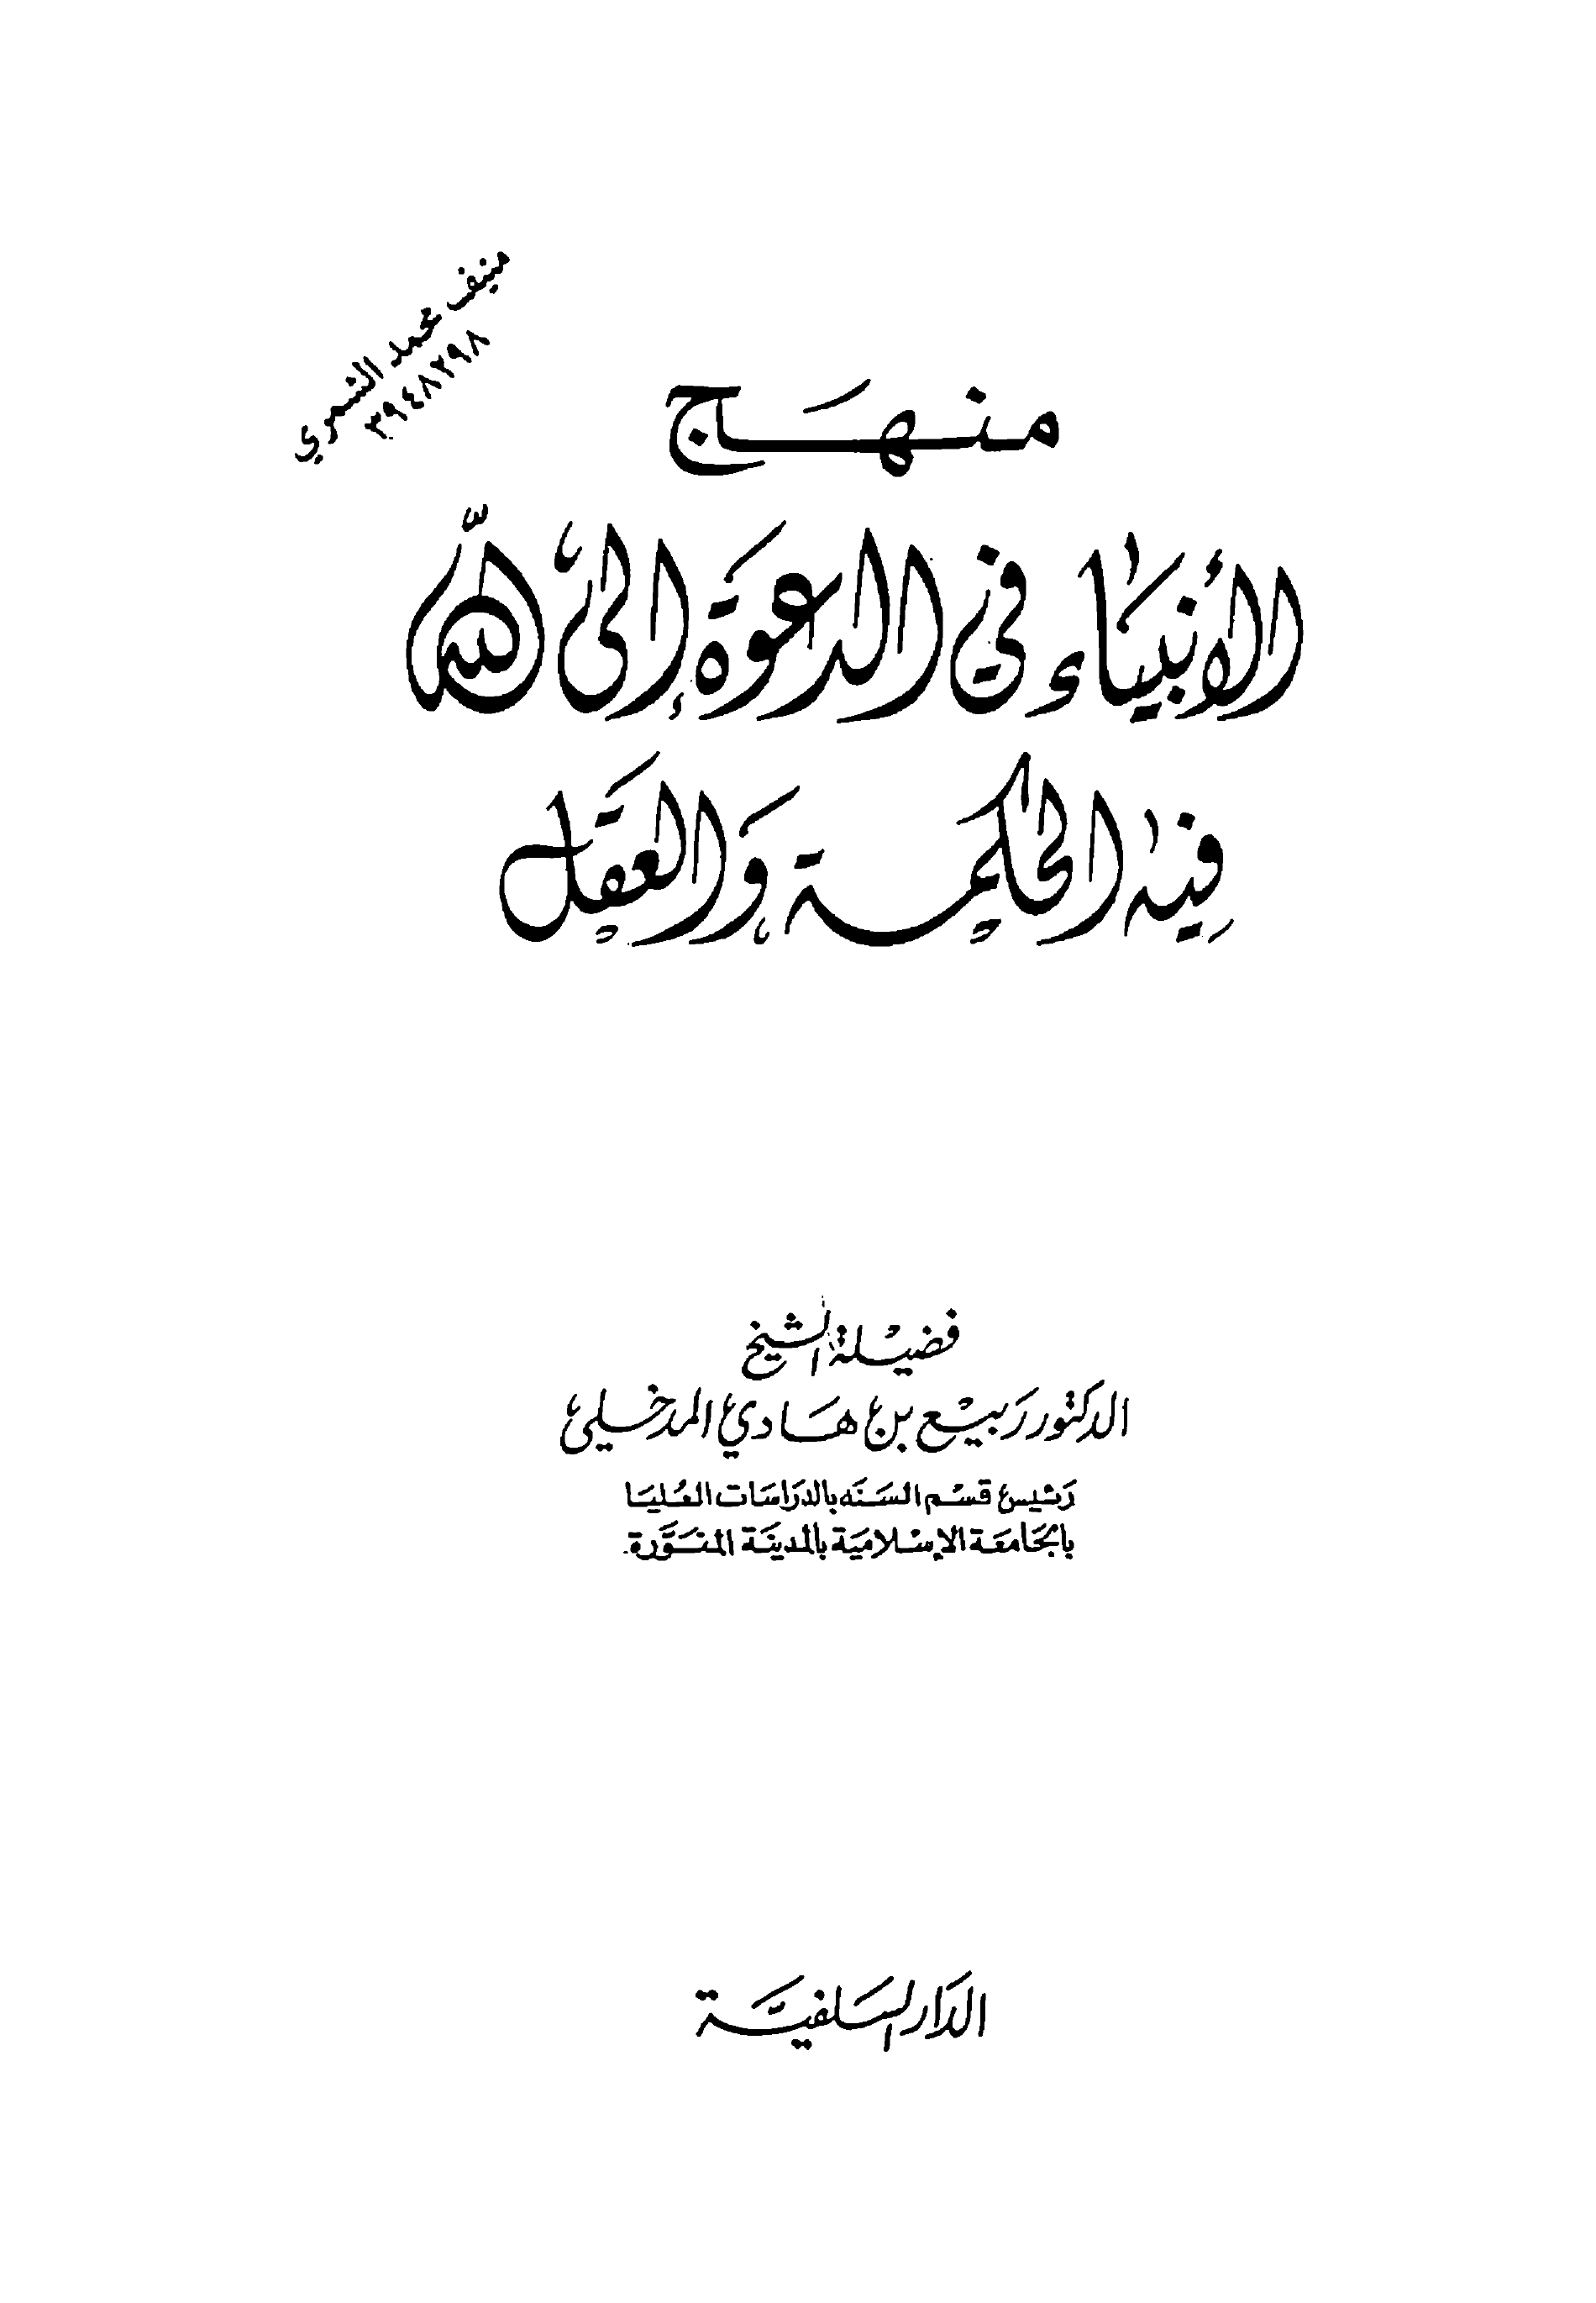 منيف محمد الشمري
٣٩٤٨٢٩٨
منهج
الأنبياء في الدعوة إلى الله
فيه الحكمة والعقل
فضيلة الشيخ
الدكتور ربيع بن هادي المدخلي
رئيس قسم السنه بالدراسات العليا
بالجامعة الإسلامية بالمدينة المنورة.
الدار السلفية